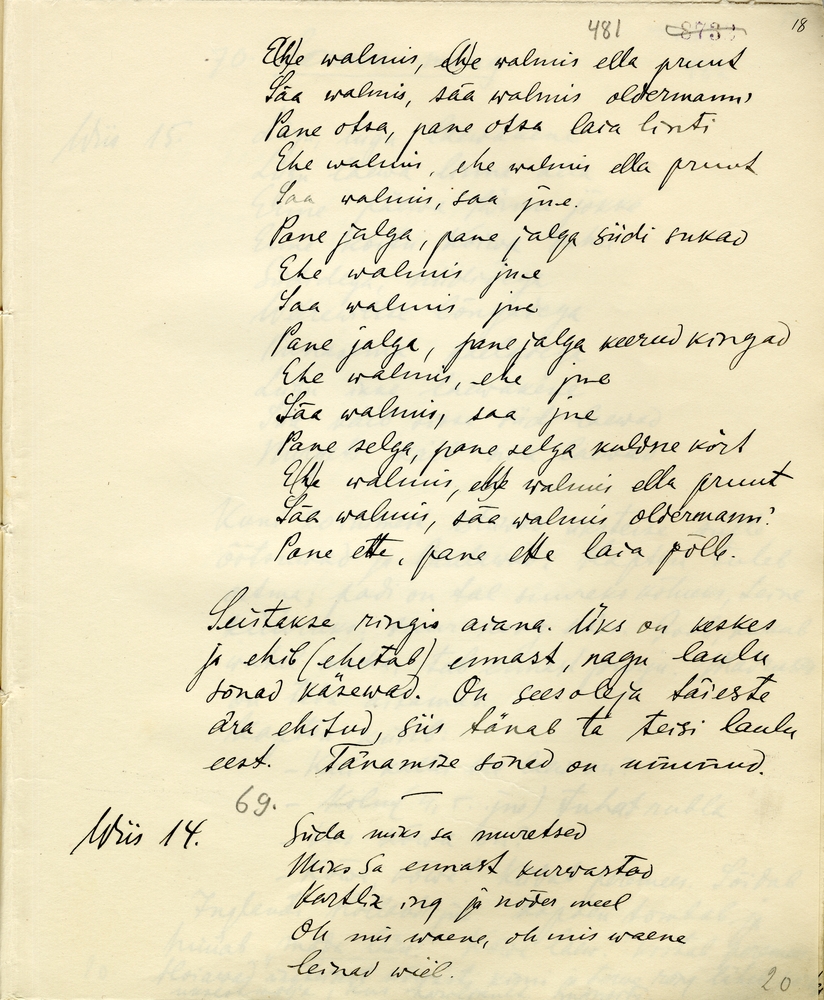 481 873 18
Ehe walmis, ehe walmis ella pruut
Sää walmis, sää walmis oldermann!
Pane otsa, pane otsa laia linti
Ehe walmis, ehe walmis ella pruut
Saa walmis, saa jne.
Pane jalga, pane jalga siidi sukad
Ehe walmis jne
Saa walmis jne
Pane jalga, pane jalga keerud kingad
Ehe walmis, ehe jne
Sää walmis, saa jne
Pane selga, pane selga kuldne kört
Ehe walmis, ehe walmis ella pruut
Sää walmis, sää walmis oldermann!
Pane ette, pane ette laia põlle.
Seistakse ringis aiana. Üks on keskes
ja ehib (ehetab) ennast, nagu laulu
sõnad käsewad. On seesoleja täieste
ära ehitud, siis tänab ta teisi laulu
eest. Tänamise sõnad on ununud.
69.
Wiis 14. Süda miks sa muretsed
Miks sa ennast kurwastad
Kartlik ing ja nõder meel
Oh mis waene, oh mis waene
leinad wiel.
20